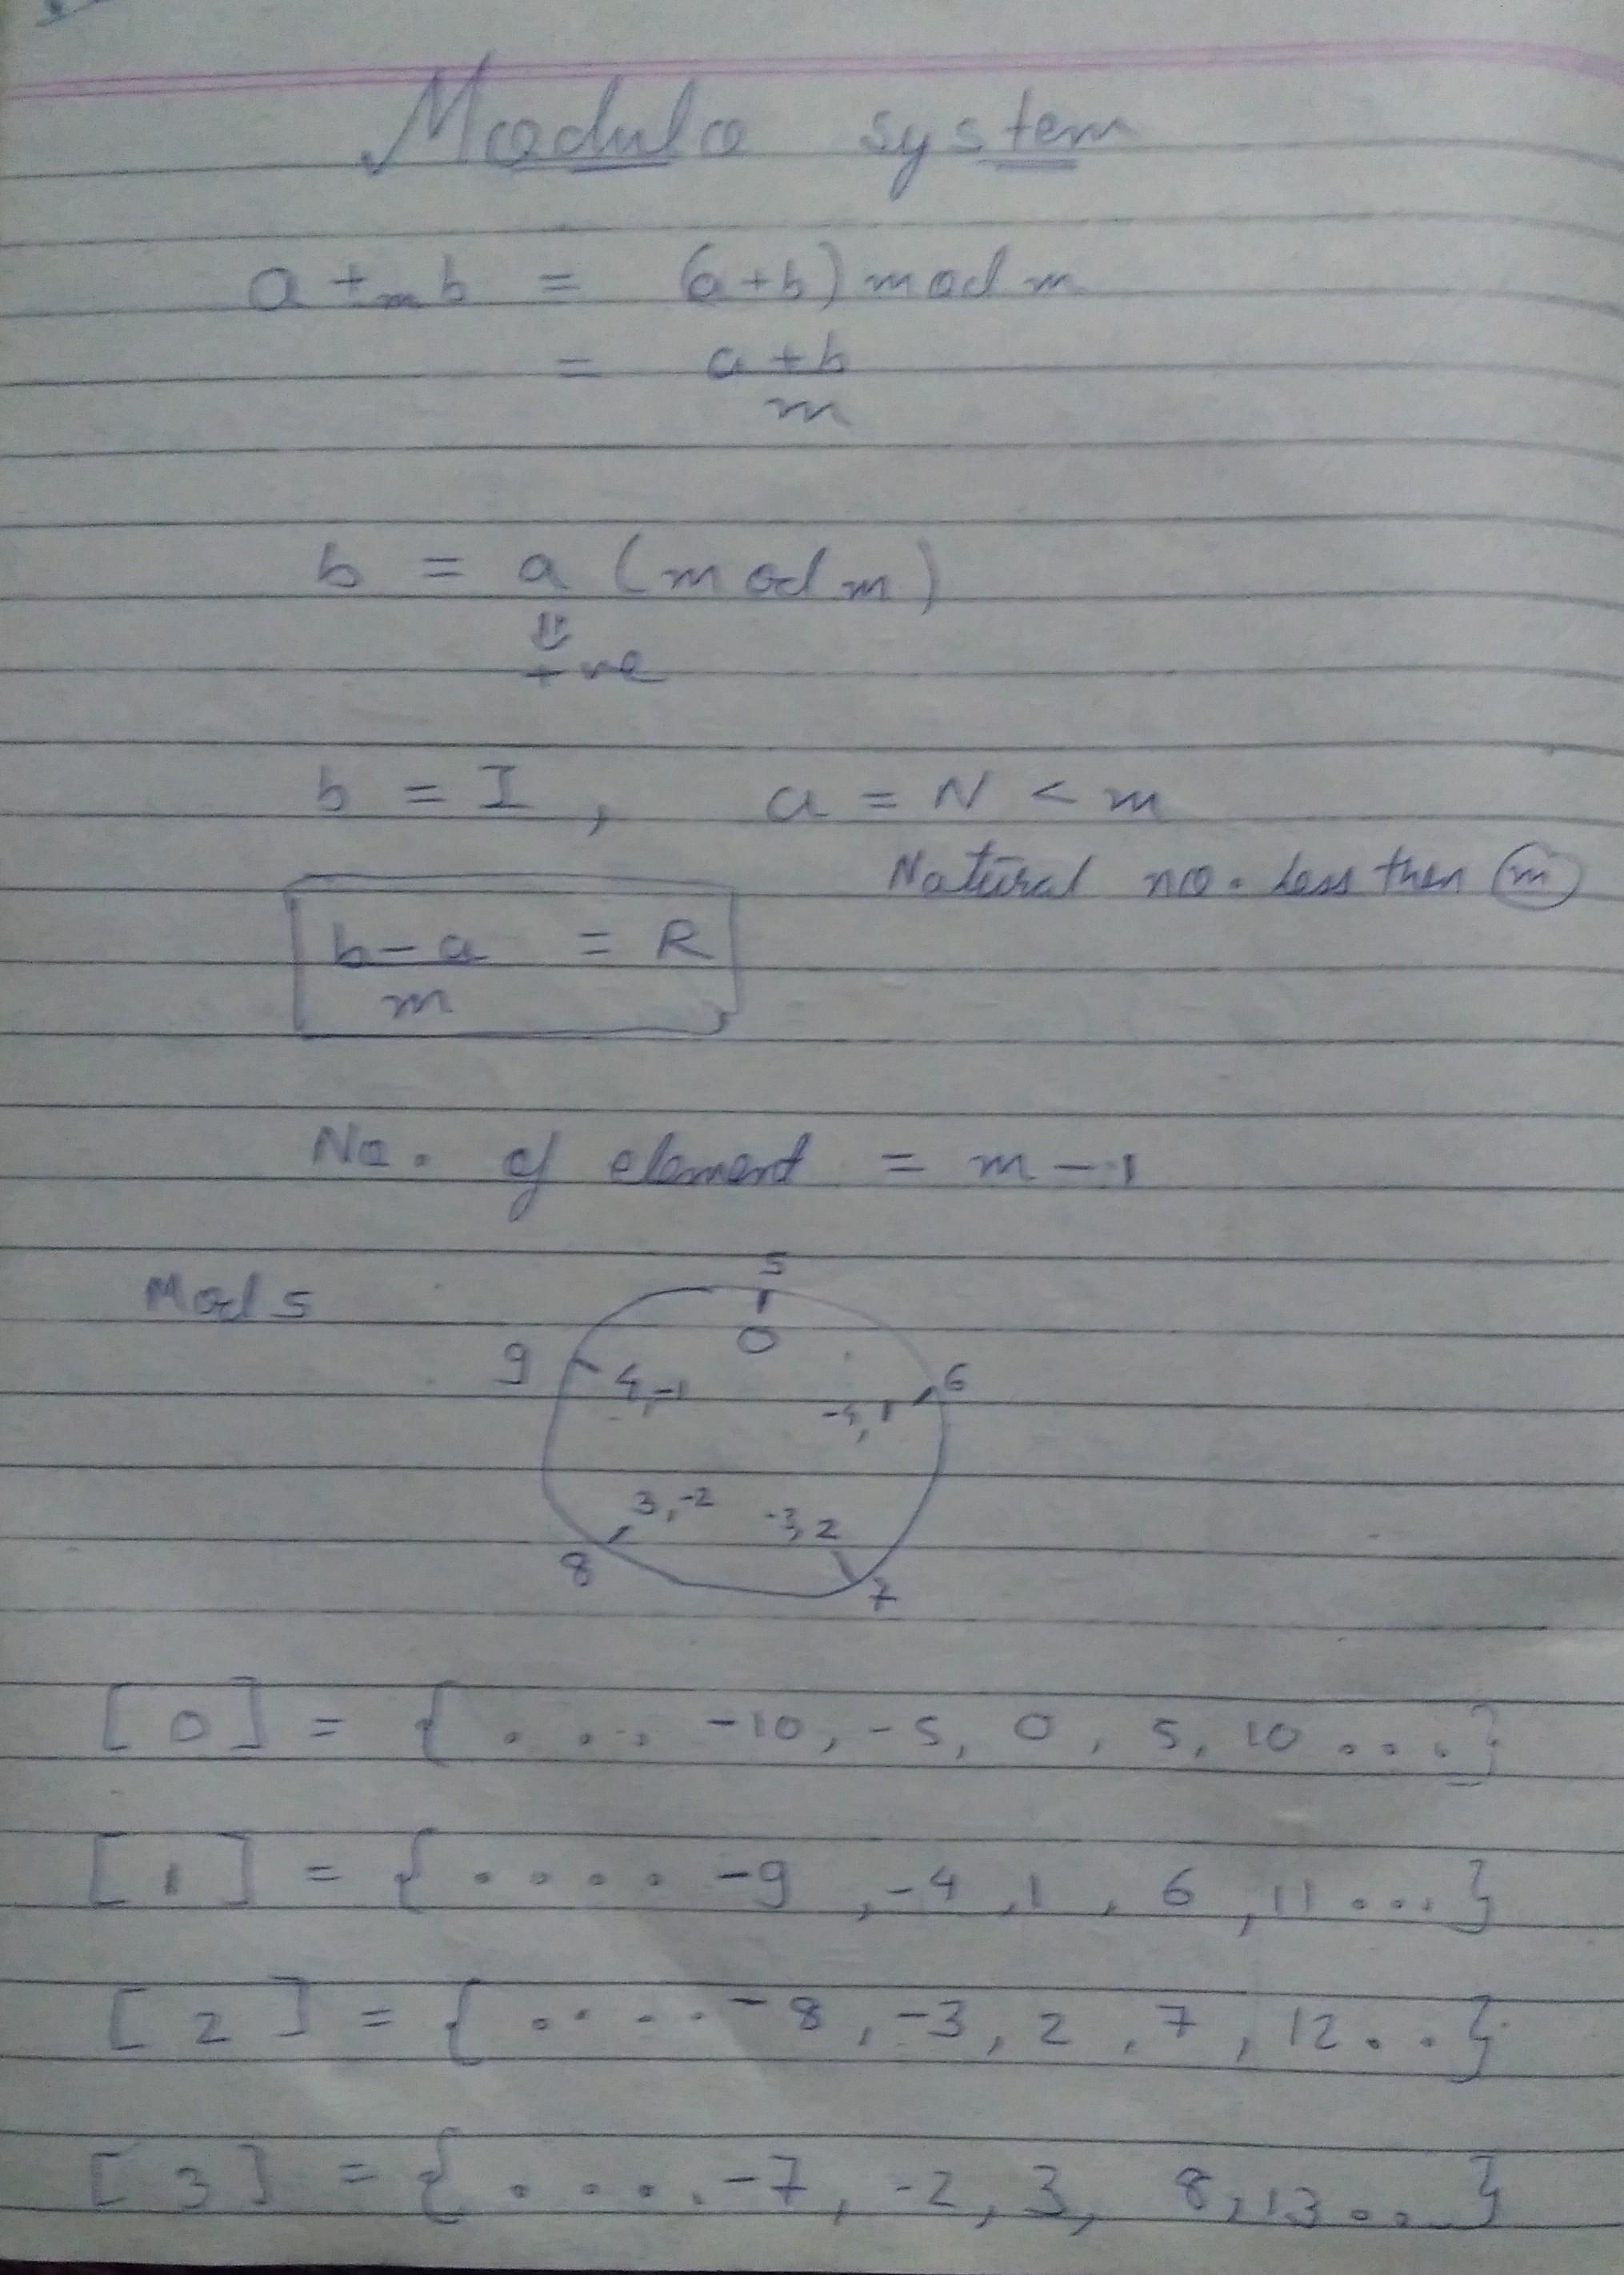 Modulo system
a +m b = (a+b) mod m
= a+b
m
b = a (mod m)
⇓
+ve
b = I , a = N < m
Natural no. Less then m
b-a = R
m
No. of element = m-1
Mod 5
5
0
9 4,-1 6
-4,1
3,-2 -3,2
8 7
[0] = { .... -10, -5, 0, 5, 10 ....}
[1] = { .... -9, -4, 1, 6, 11 ...}
[2] = { .... -8, -3, 2, 7, 12 ..}
[3] = { .... -7, -2, 3, 8, 13 ...}